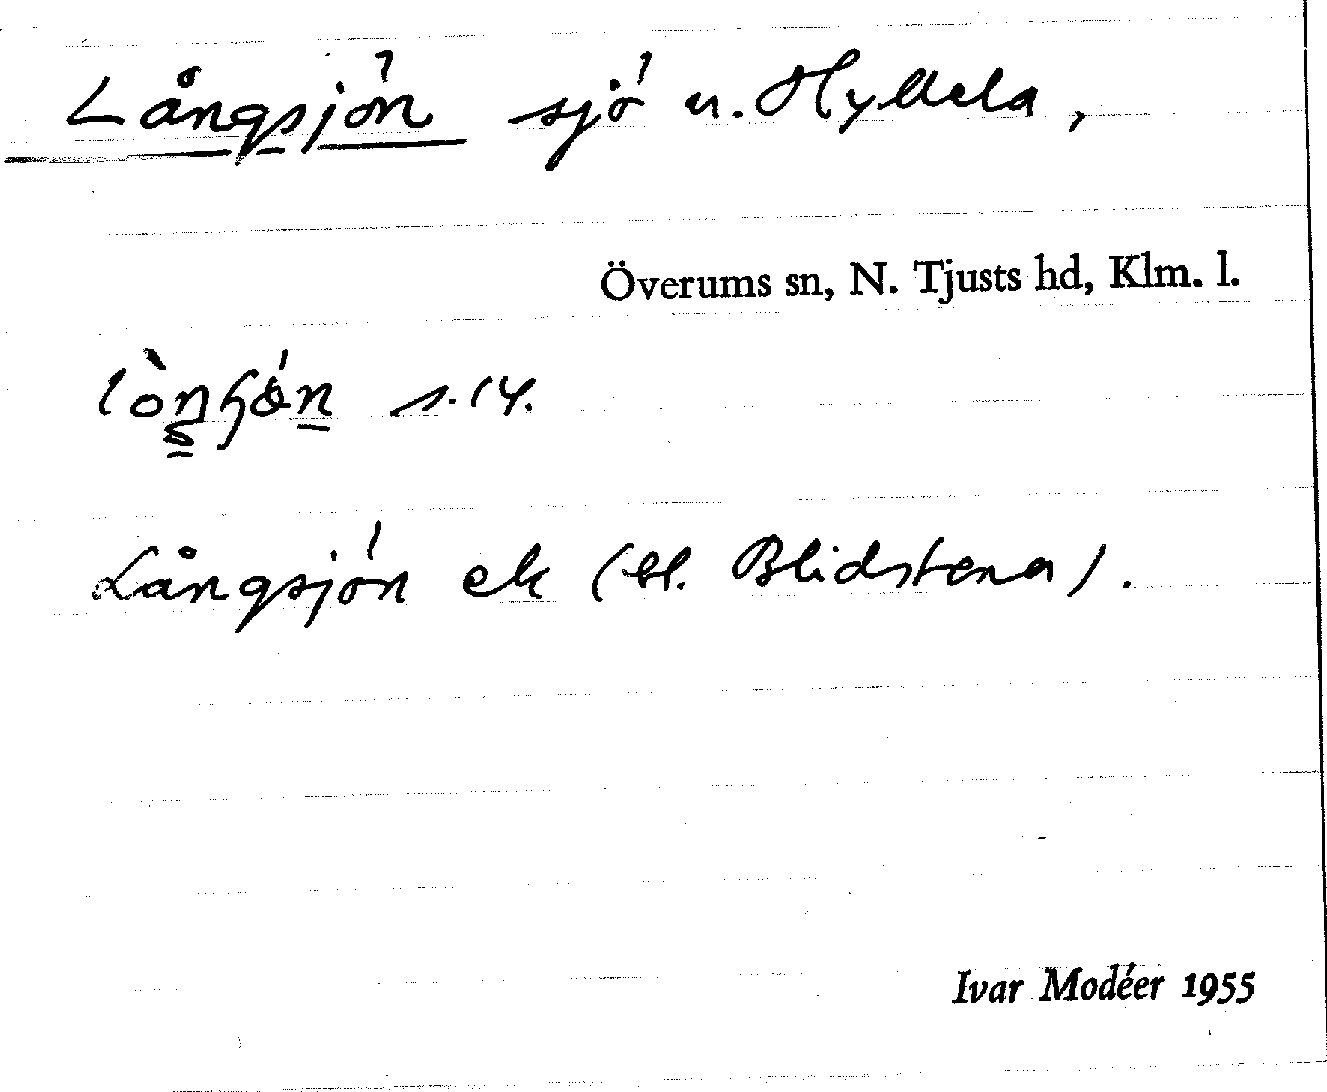 Långsjön sjö n. Hyllela,
Överums sn, N. Tjusts hd, Klm. l.
s. 14.
Långsjön ek (bl. Blidstena).
Ivar Modéer 1955